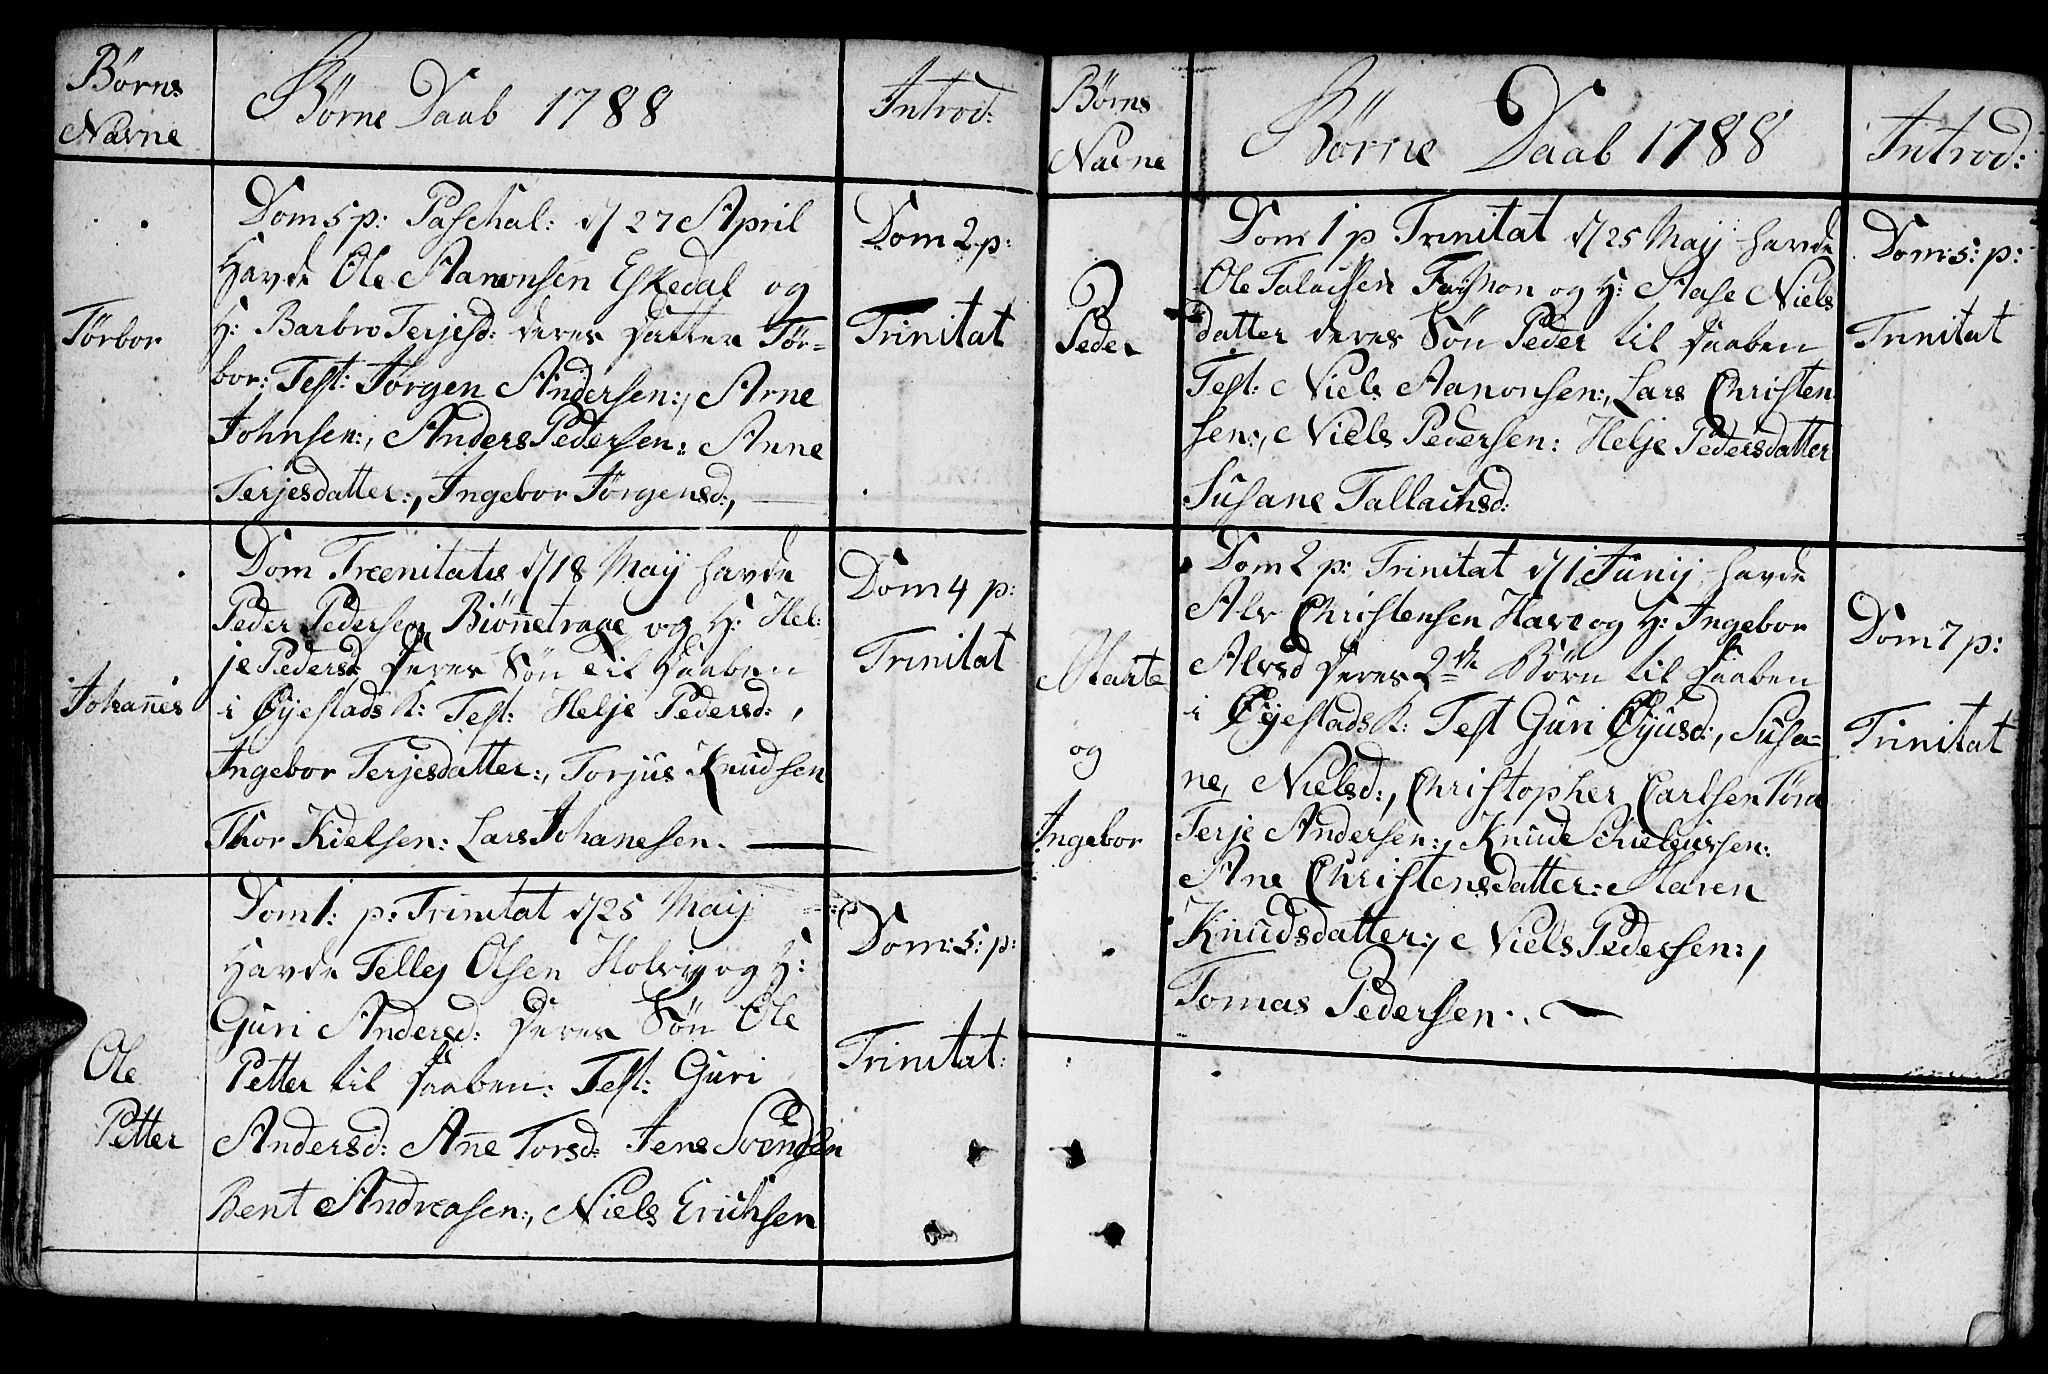 Børns
Navne
Børne Daab 1788
Introd:
Tørbor
Dom 5 p: Paschal: d 27 April
Havde Ole Aanonsen Eskedal og
H: Barbro Terjesd: deres Datter Tør=
bor: Test: Jørgen Andersen:, Arne
Johnsen:, Anders Pedersen: Anne
Terjesdatter:, Ingebor Jørgensd:,
Dom 2 p:
Trinitat
Johannes
Dom Treenitatis d 18 Maij havde
Peder Pedersen Biønnetraae og H: Hel:
je Pedersd: Deres Søn til Daaben
i Øyestads K: Test: Helje Pedersd:,
Ingebor Terjesdatter:, Torjus Knudsen
Thor Kielsen: Lars Johanesen.
Dom 4 p:
Trinitat
Ole
Petter
Dom 1: p: Trinitat d 25 Maij
Havde Tellej Olsen Holvig og H:
Guri Andersd: Deres Søn Ole
Petter til Daaben: Test: Guri
Andersd: Anne Torsd: Jens Svendsen
Bent Andreasen:, Niels Erichsen
Dom: 5: p:
Trinitat:
Børns
Navne
Børne Daab 1788
Introd:
Peder
Dom 1 p Trinitat d 25 Maij havde
Ole og H: Aase Niels
datter deres Søn Peder til Daaben
Test: Niels Aanonsen:, Lars Christen
sen:, Niels Pedersen: Helje Pedersdatter
Susane Tallachsd:
Dom: 5: p:
Trinitat
Marte
og
Ingebor
Dom 2 p: Trinitat d 1 Junij havde
Alv Christensen Have og H: Ingebor
Alvsd Deres 2de Børn til Daaben
i Øyestads K: Test Guri Øyusd:, Susa=
ne, Nielsd:, Christopher Carlsen
Terje Andersen:, Knud
Ane Christensdatter: Maren
Knudsdatter:, Niels Pedersen:,
Tomas Pedersen.
Dom 7 p:
Trinitat